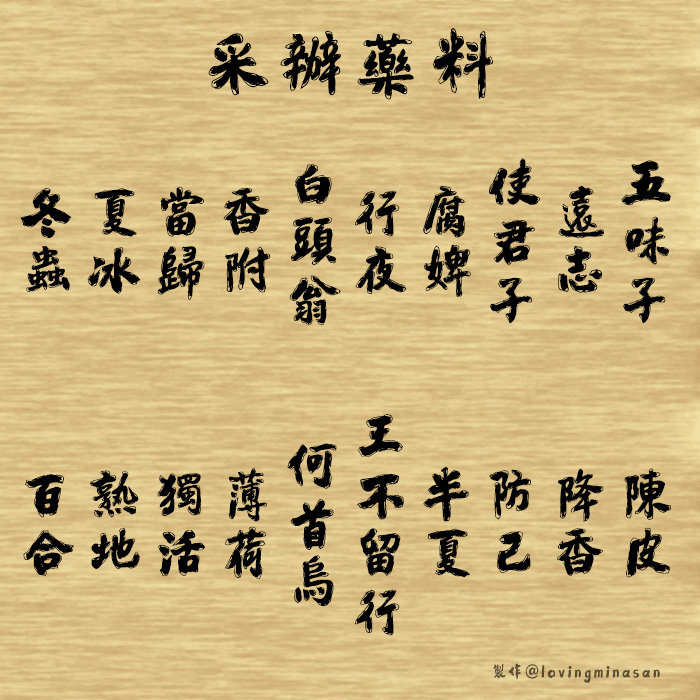 采辦藥料
五味子
遠志
使君子
腐婢
行夜
白頭翁
香附
當歸
夏冰
冬蟲
陳皮
降香
防己
半夏
王不留行
何首烏
薄荷
獨活
熟地
百合
製作@lovingminasan